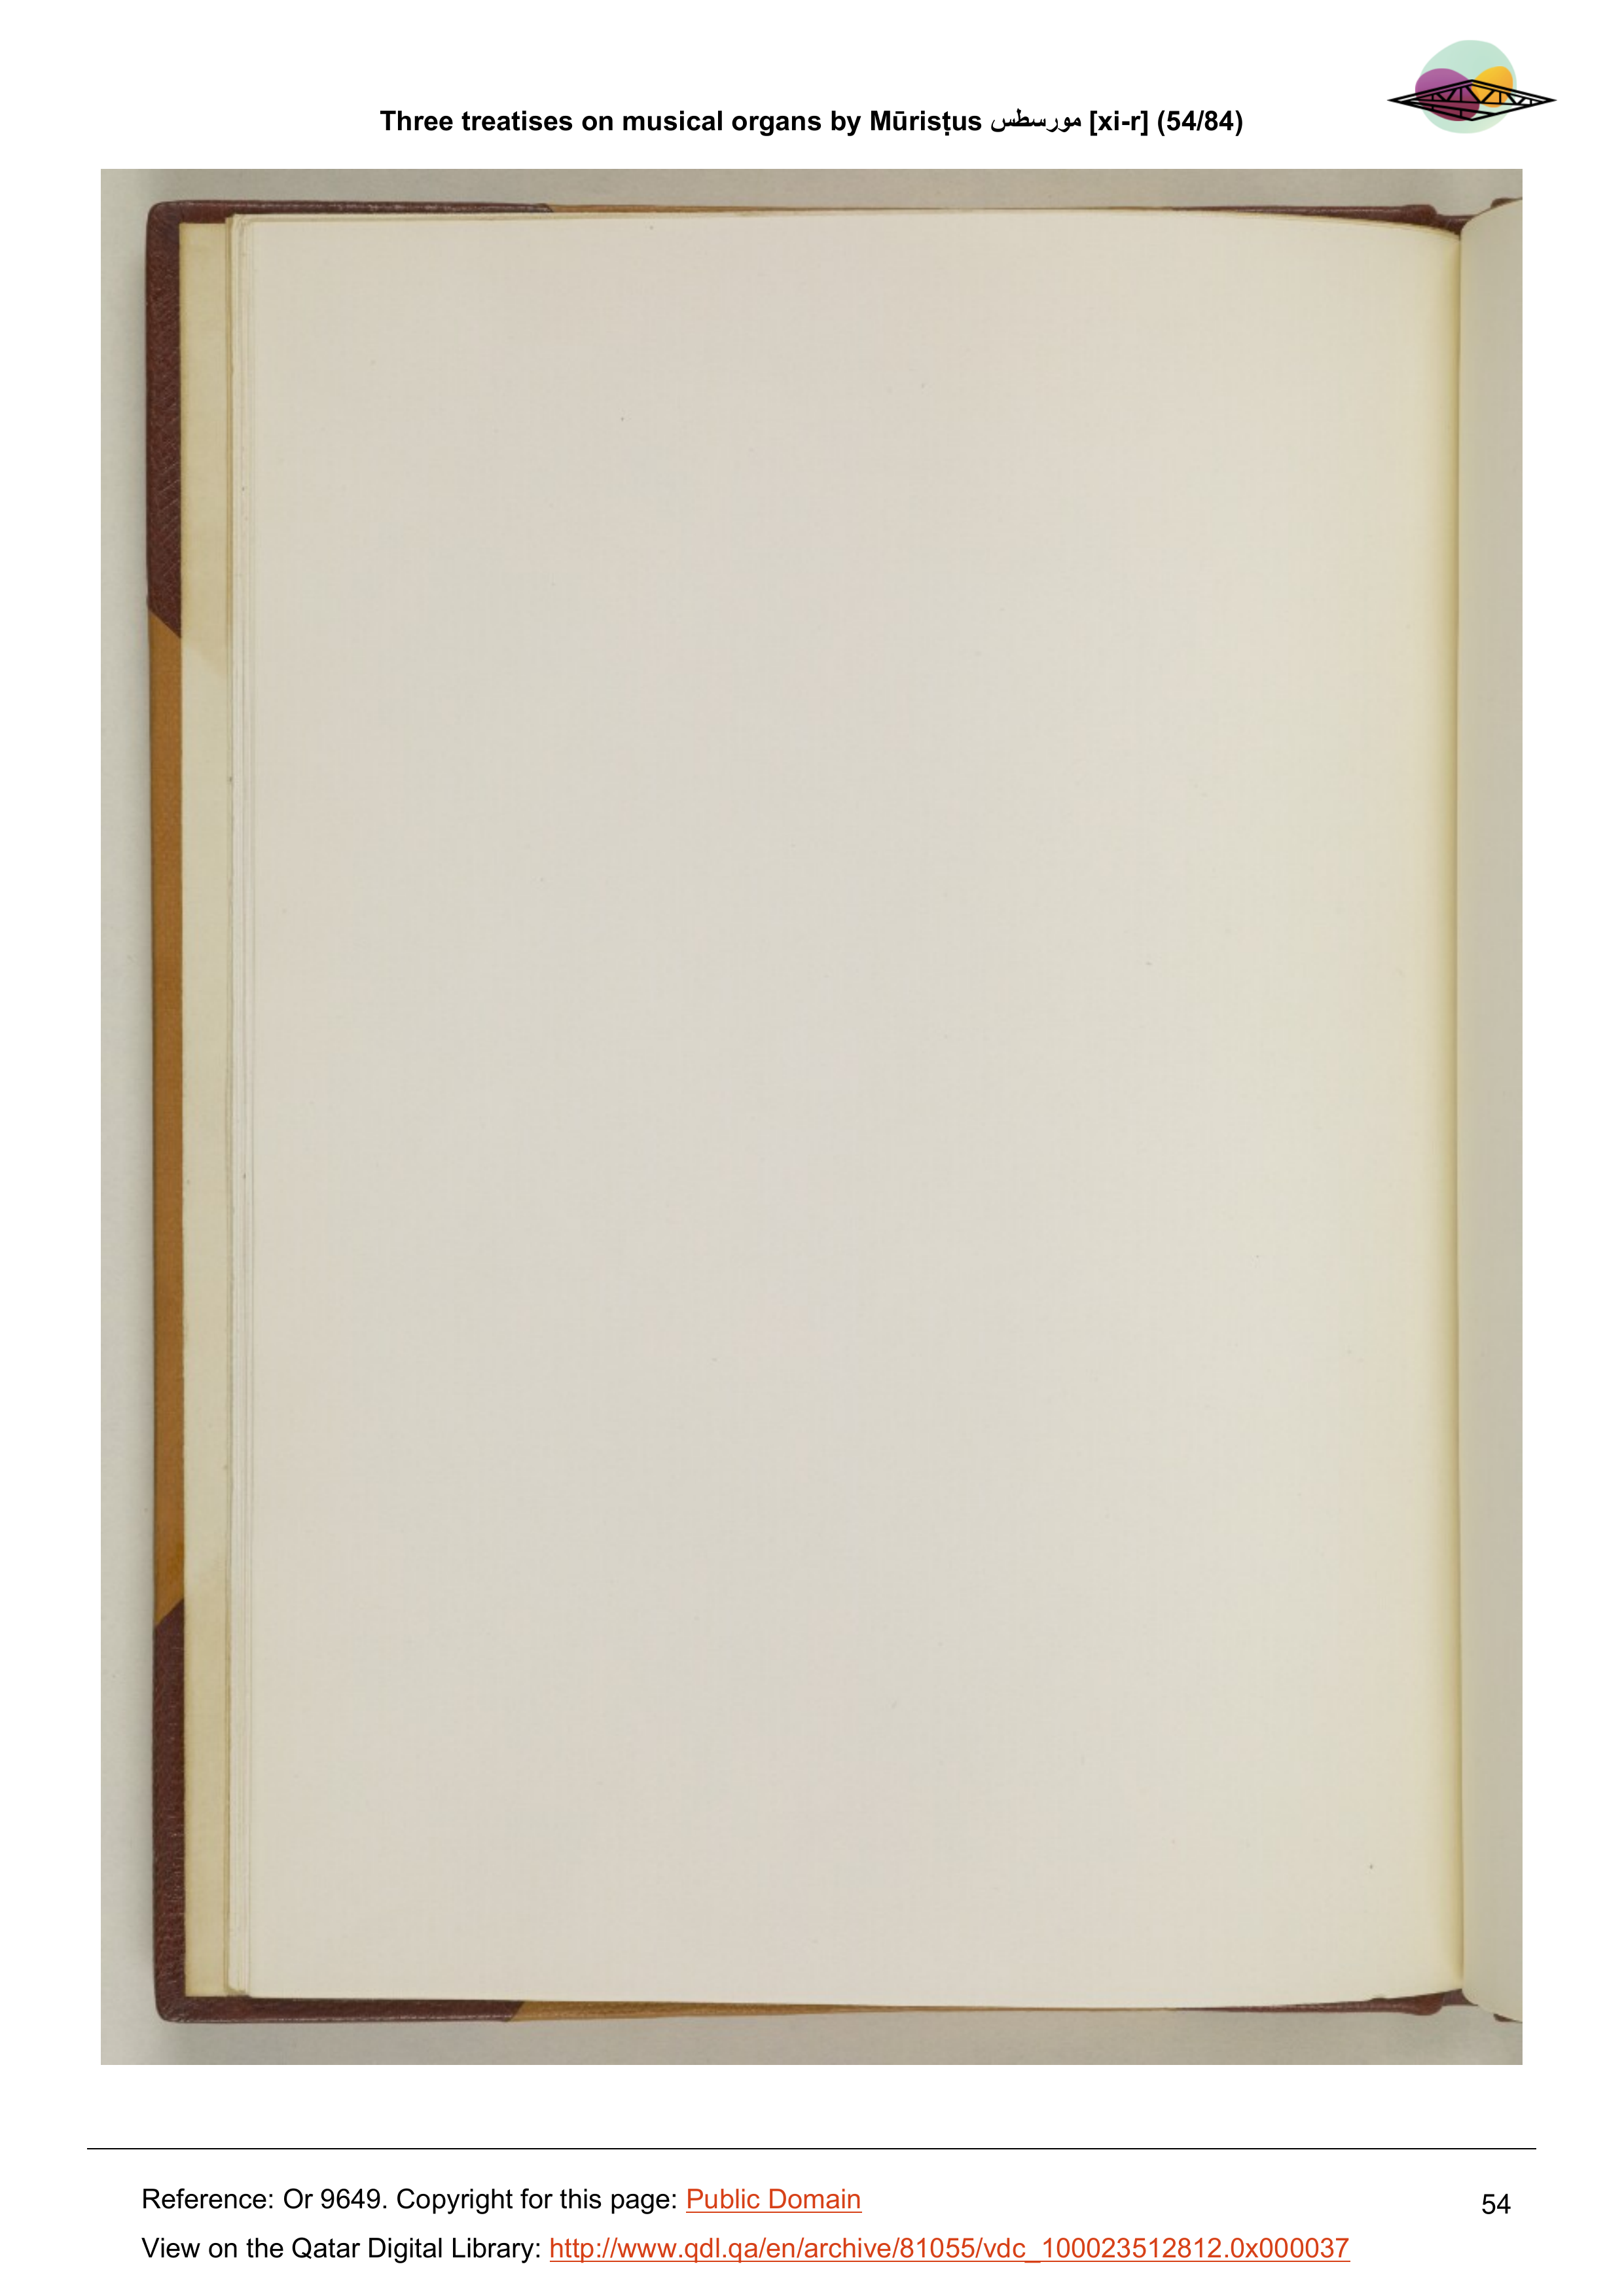 Three treatises on musical organs by Mūrisṭus مورسطس [xi-r] (54/84)
Reference: Or 9649. Copyright for this page: Public Domain
54
View on the Qatar Digital Library: http://www.qdl.qa/en/archive/81055/vdc_100023512812.0x000037